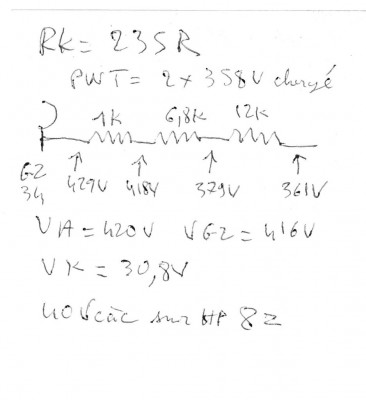 RK = 235R
PWT = 2 x 358V chargé
1K 6,8K 12K
GZ
34
429V 418V 379V 361V
VA = 420V VG2 = 416V
VK = 30,8V
40Vcàc sur HP 8Ω